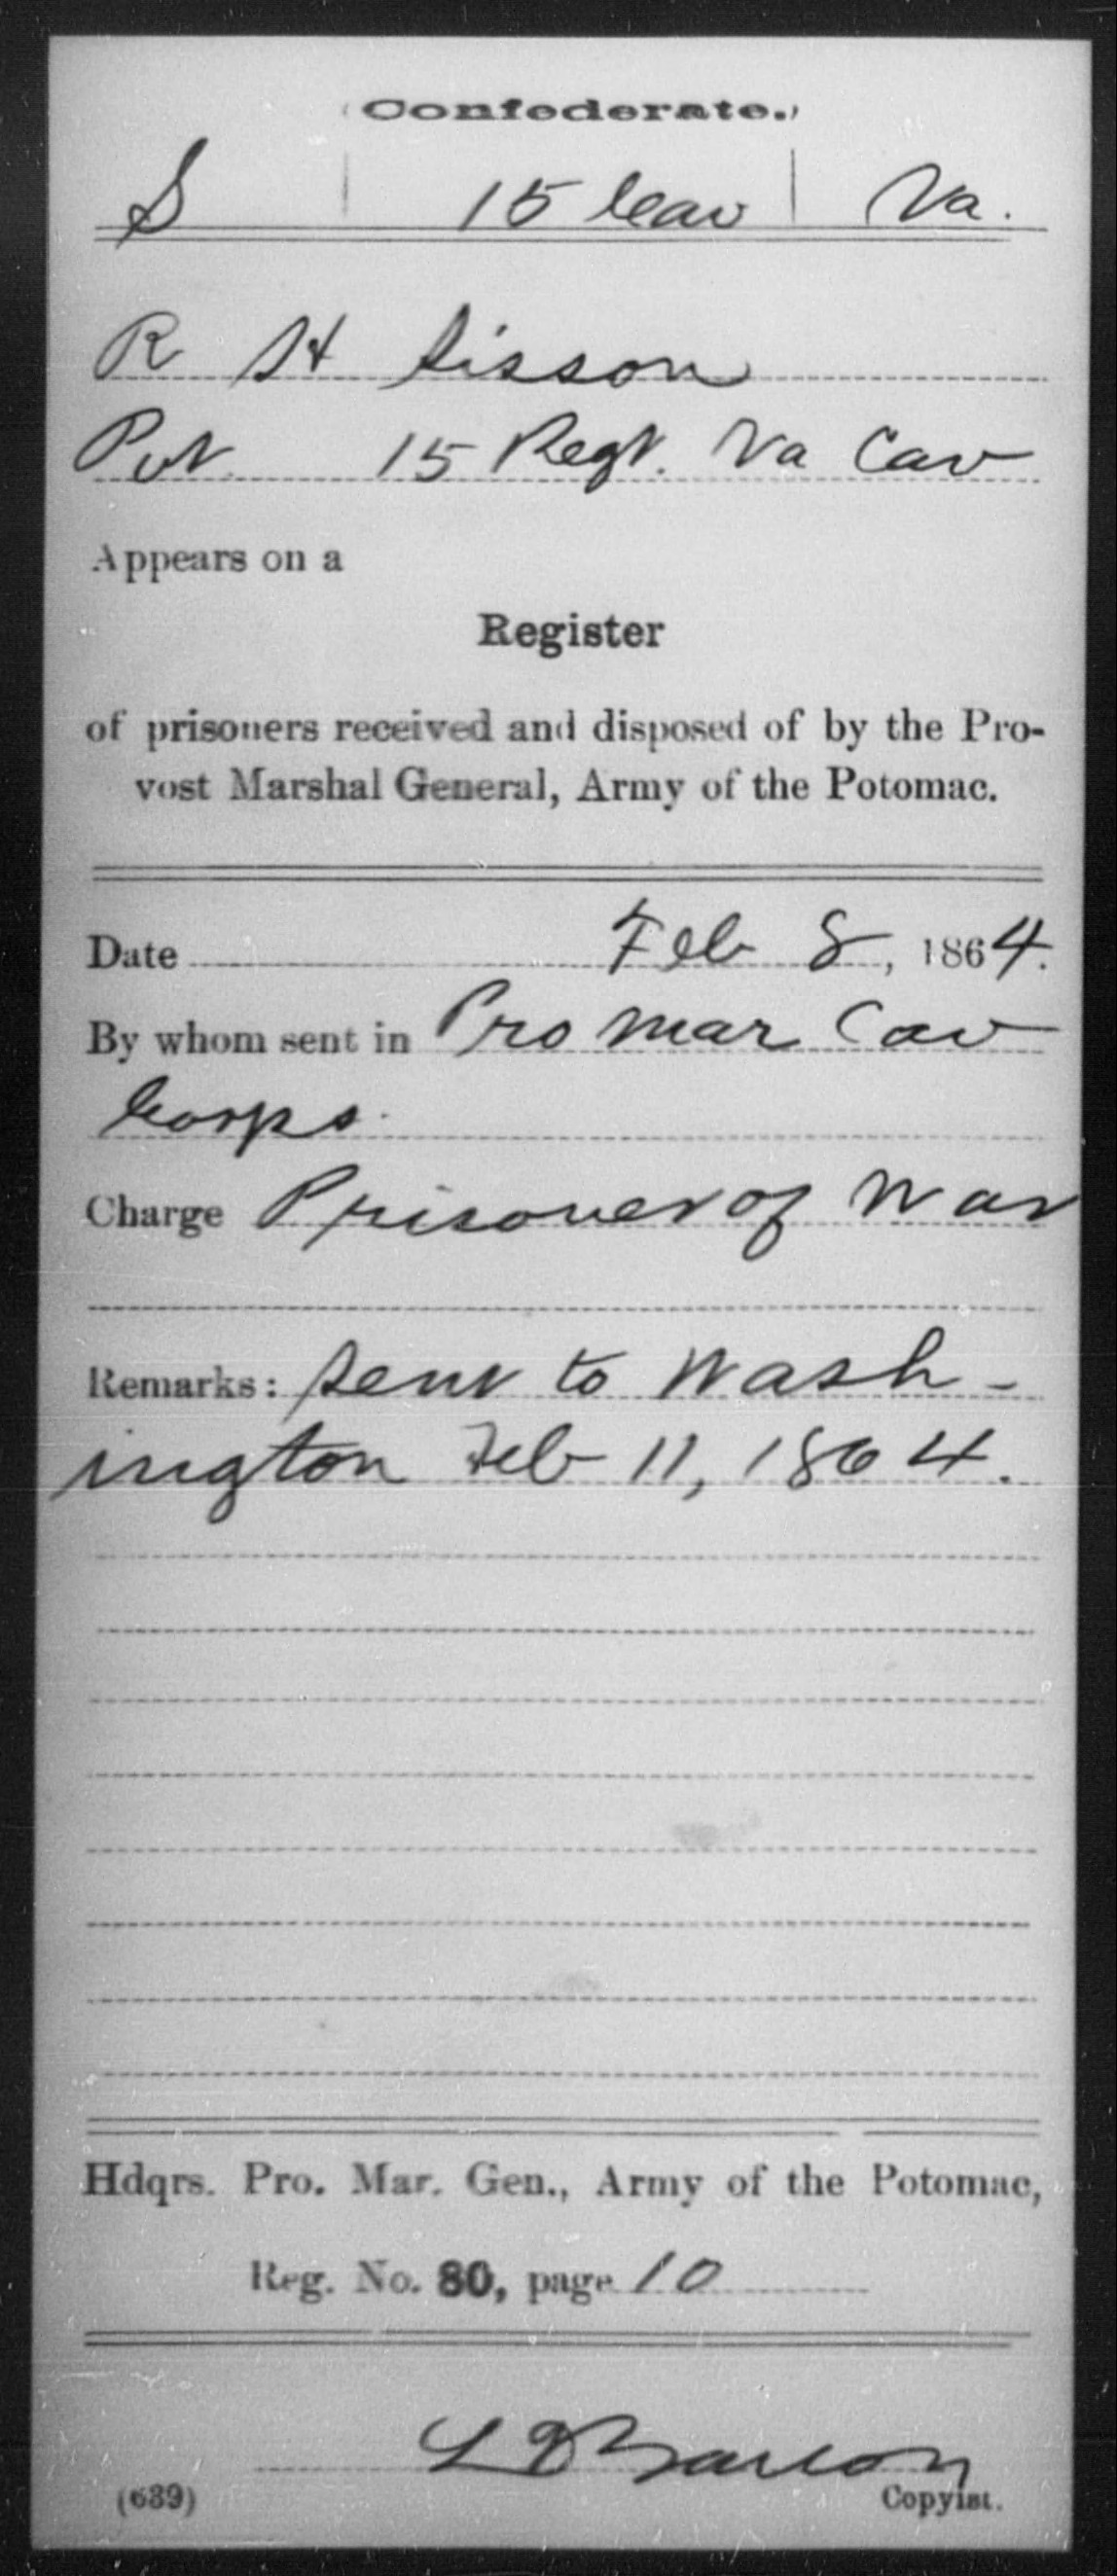 (Confederate.)
S | 15 Cav | Va.
R H Sisson
Pvt. 15 Regt. Va Cav
Appears on a
Register
of prisoners received and disposed of by the Pro-
vost Marshal General, Army of the Potomac.
Date Feb 8, 1864.
By whom sent in Pro Mar Cav
Corps.
Charge Prisoner of War
Remarks: Sent to Wash-
ington Feb 11, 1864.
Hdqrs. Pro. Mar. Gen., Army of the Potomac,
Reg. No. 80, page 10
(639)
Copyist.